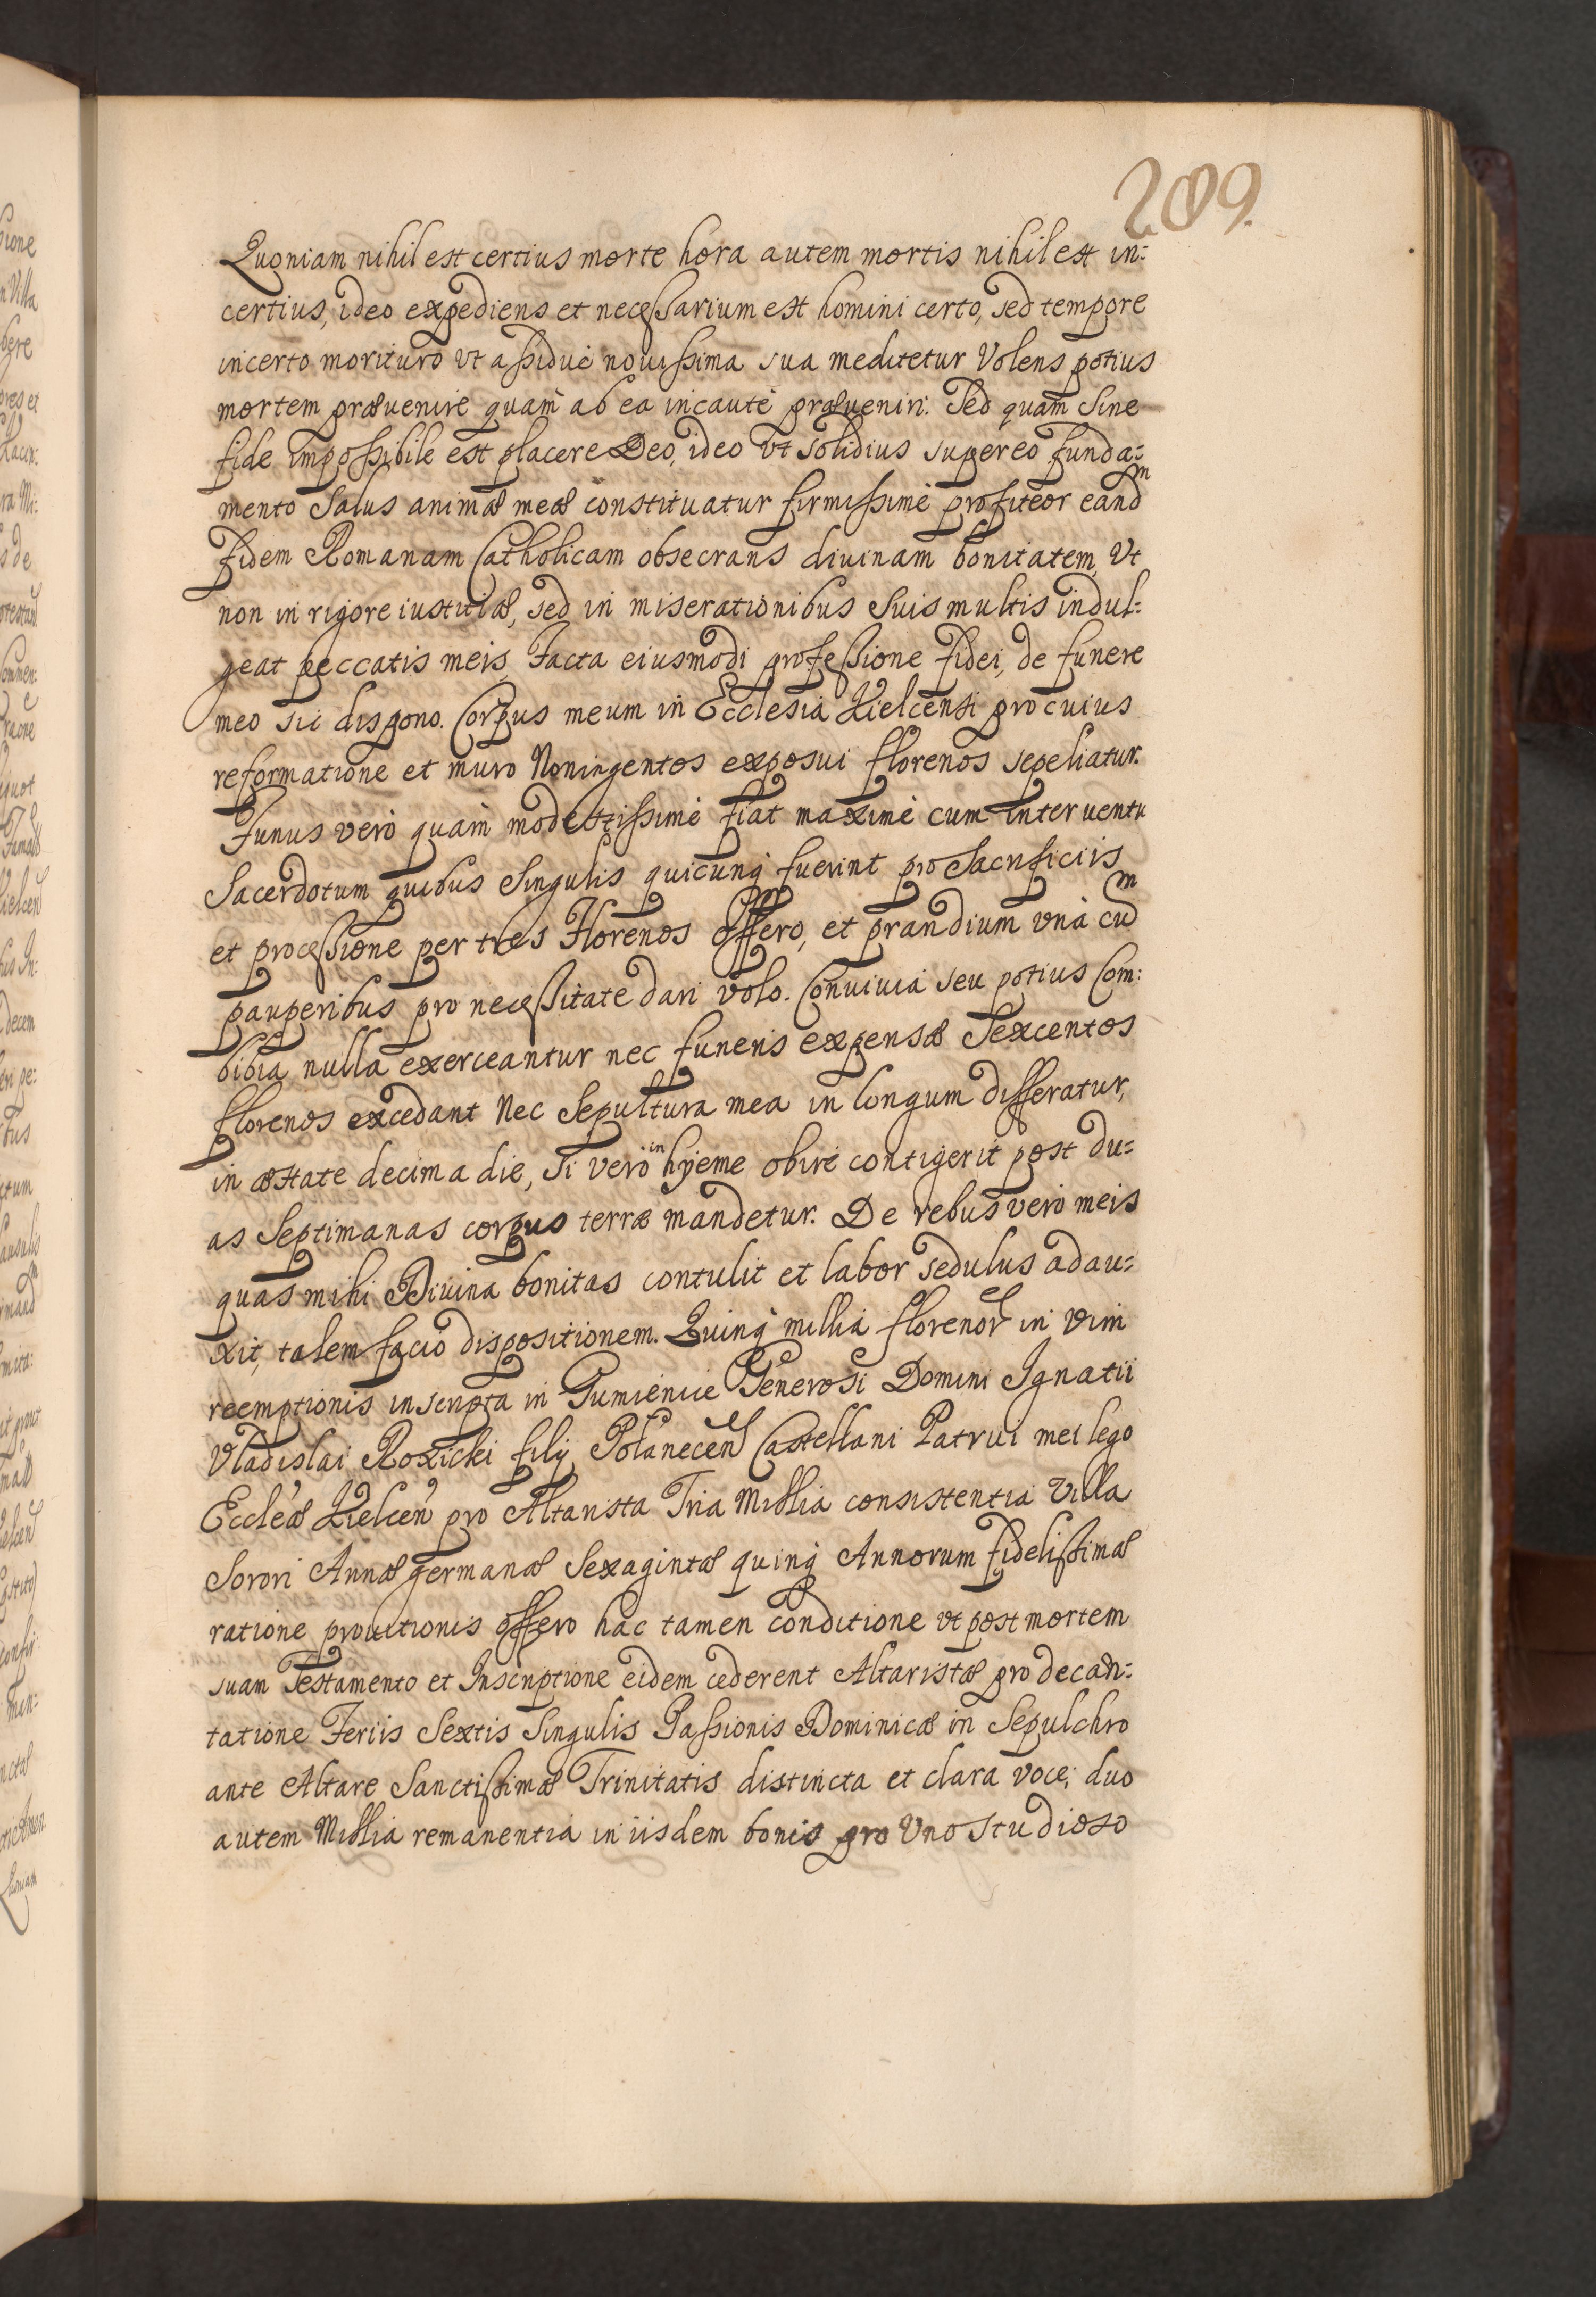 209.
Quoniam nihil est certius morte hora autem mortis nihil est in:
certius, ideo expediens et necessarium est homini certo, sed tempore
incerto morituro vt assiduè nouissima sua meditetur Volens potius
mortem præuenire quàm ab ea incautè præueniri. Sed quam Sine
fide impossibile est placere Deo, ideo vt solidius super eo funda:
mento Salus animæ meæ constituatur firmissimè profiteor eandm
Fidem Romanam Catholicam obsecrans diuinam bonitatem, Vt
non in rigore iustitiæ, sed in miserationibus Suis multis indul:
geat peccatis meis, Facta eiusmodi professione fidei, de funere
meo sic dispono. Corpus meum in Ecclesia Kielcensi pro cuius
reformatione et muro Noningentos exposui florenos sepeliatur.
Funus verò quàm modestissimè fiat maximè cum interuentu
Sacerdotum quibus Singulis quicunq fuerint pro Sacrificiis
et processione per tres Florenos offero, et prandium vnà cum
pauperibus pro necessitate dari volo. Conuiuia seu potius Com:
bibia nulla exerceantur nec funeris expensæ Sexcentos
florenos excedant Nec Sepultura mea in longum differatur,
in æstate decima die, Si verò in hyeme obire contigerit post du:
as Septimanas corpus terræ mandetur. De rebus verò meis
quas mihi Diuina bonitas contulit et labor sedulus adau:
xit, talem facio dispositionem. Quinq millia florenor in vim
reemptionis inscripta in Gumienice Generosi Domini Ignatii
Vladislai Roxicki filij Polanecen Castellani Patrui mei lego
Eccleæ Kielcen pro Altarista Tria Millia consistentia Villa
Sorori Annæ germanæ Sexagintæ quinq Annorum fidelissimæ
ratione prouitionis offero hac tamen conditione vt post mortem
suam Testamento et Inscriptione eidem cederent Altaristæ pro decan:
tatione Feriis Sextis Singulis Passionis Dominicæ in Sepulchro
ante Altare Sanctissimæ Trinitatis distincta et clara voce; duo
autem Millia remanentia in iisdem bonis pro Vno studioso